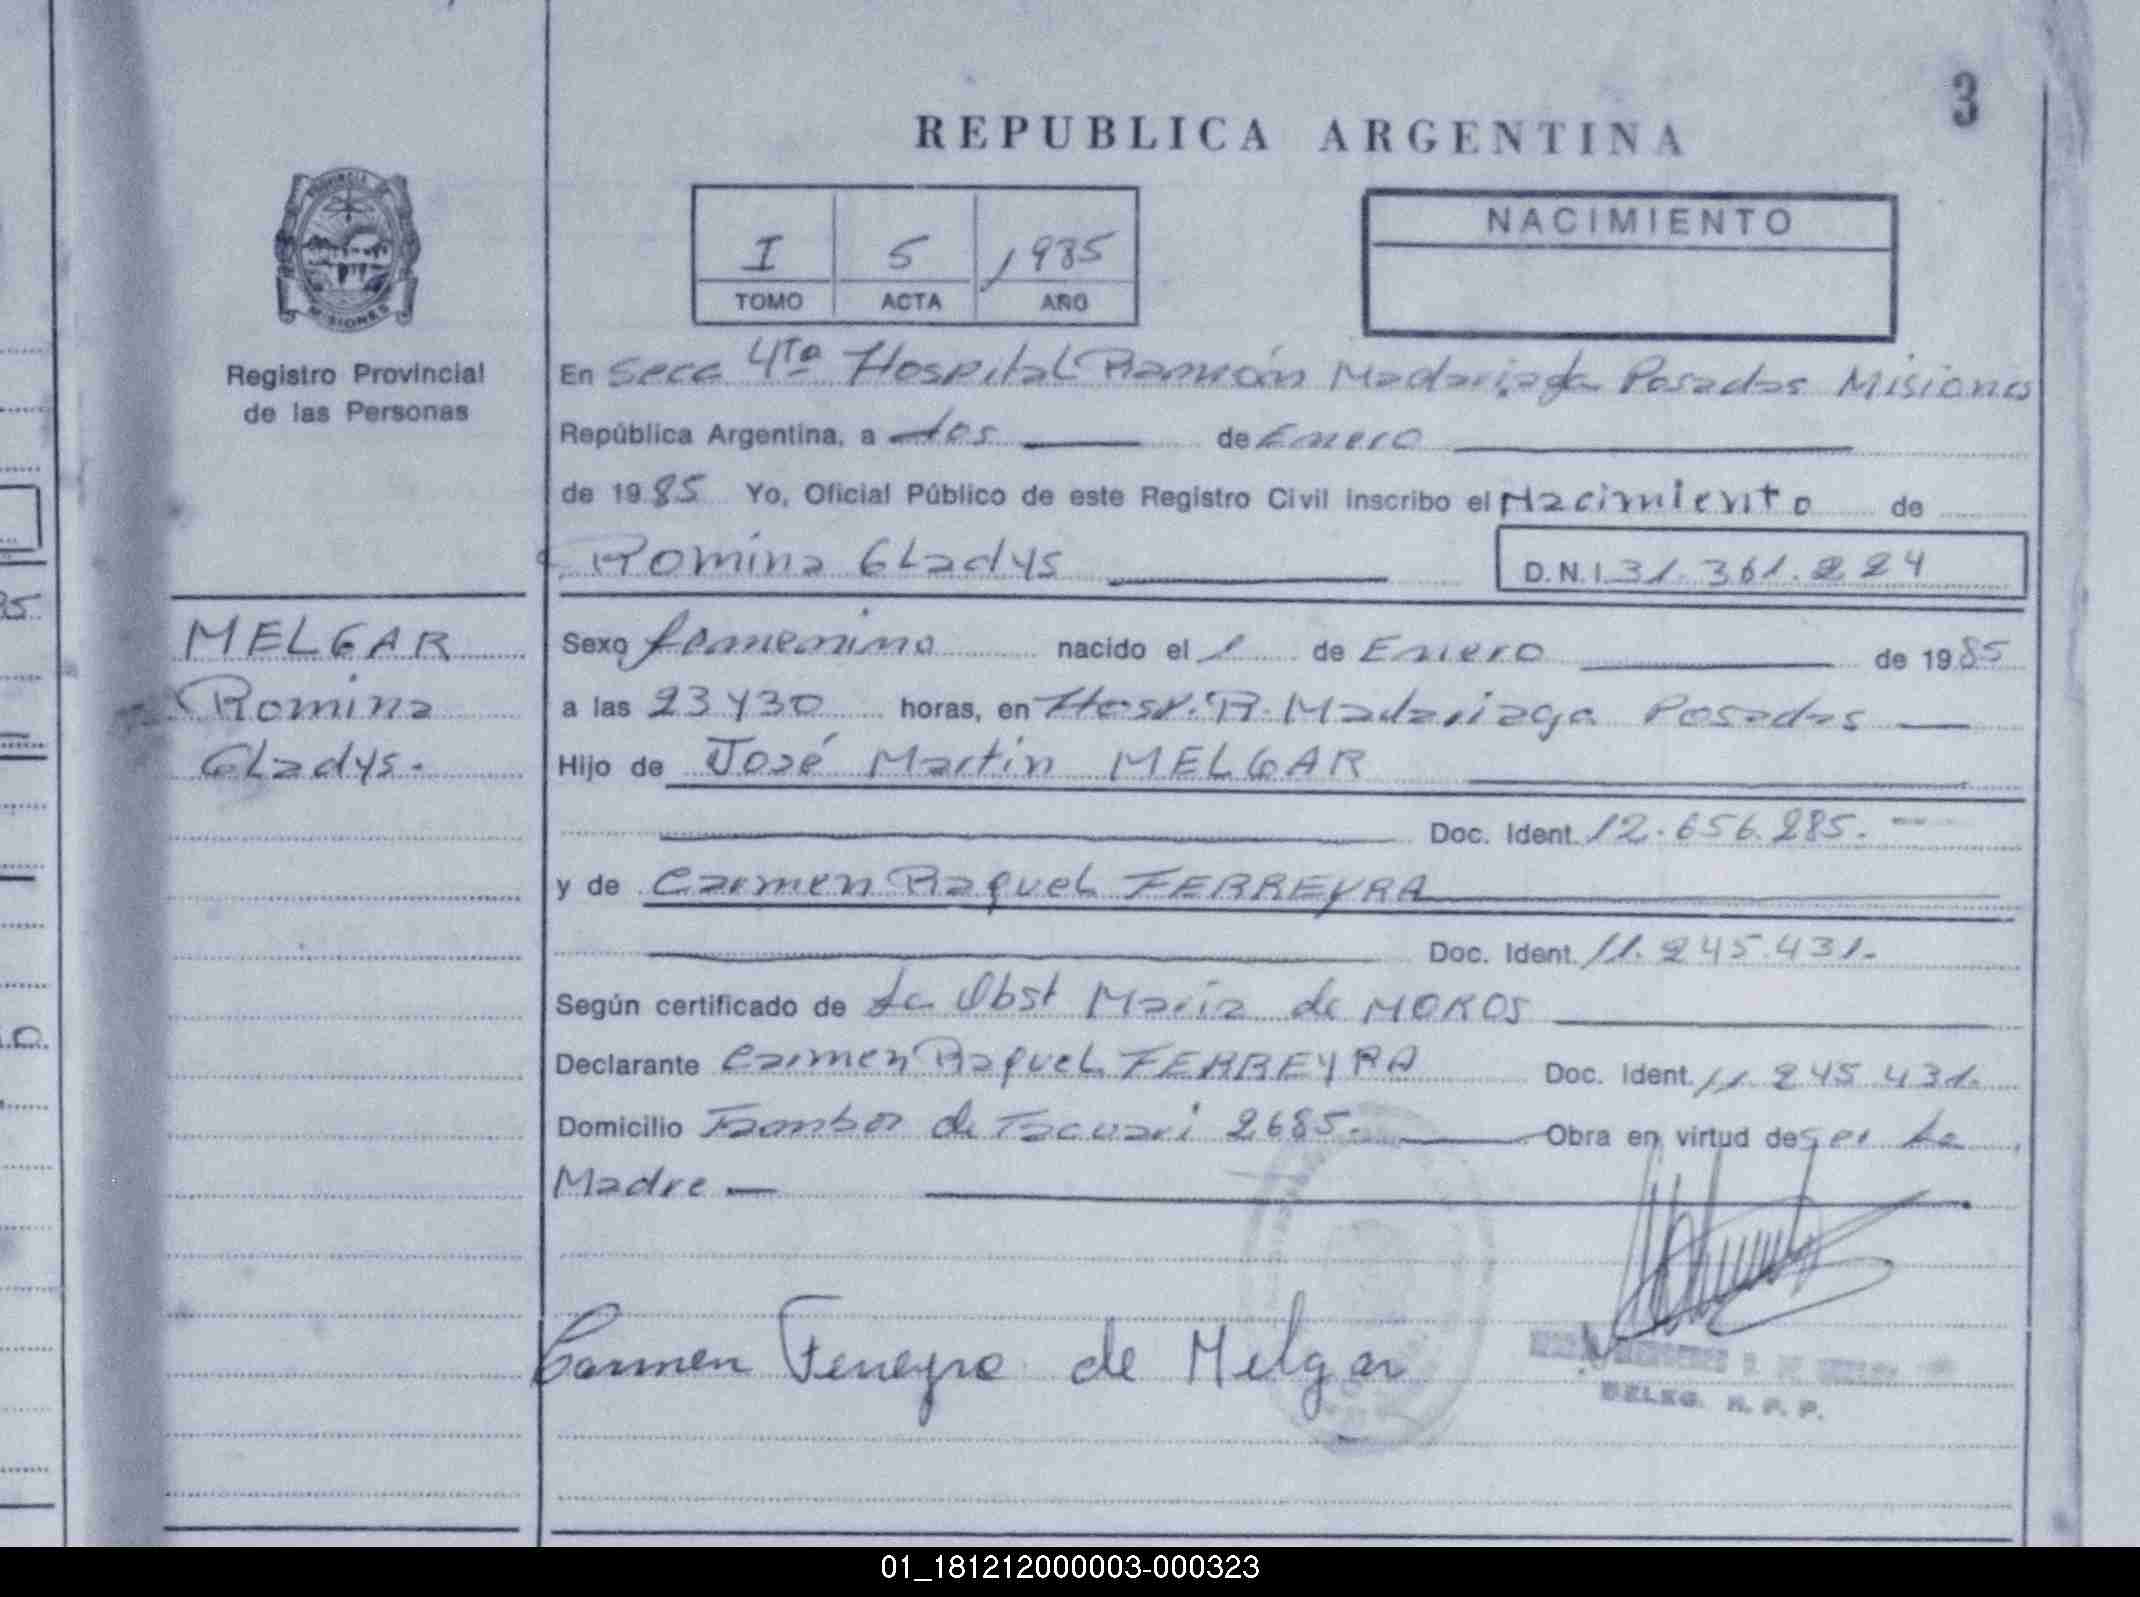 3
REPUBLICA ARGENTINA
I 5 1985
TOMO ACTA AÑO
NACIMIENTO
PROVINCIA DE
MISIONES
Registro Provincial
de las Personas
En Secc 4ta Hospital Ramón Madariaga Posadas Misiones
República Argentina, a dos de Enero
de 1985 Yo, Oficial Público de este Registro Civil inscribo el Nacimiento de
Romina Gladys D.N.I 31.361.224
MELGAR
Romina
Gladys.
Sexo femenino nacido el 1 de Enero de 1985
a las 23 y 30 horas, en Hosp. R. Madariaga Posadas
Hijo de José Martín MELGAR
Doc. Ident. 12.656.285.
y de Carmen Raquel FERREYRA
Doc. Ident. 11.245.431.
Según certificado de La Obst Maria de MOROS
Declarante Carmen Raquel FERREYRA Doc. Ident. 11.245.431.
Domicilio Tambor de Tacuari 2685. Obra en virtud de ser La
Madre
Carmen Ferreyra de Melgar
DELEG. R. P. P.
01_181212000003-000323